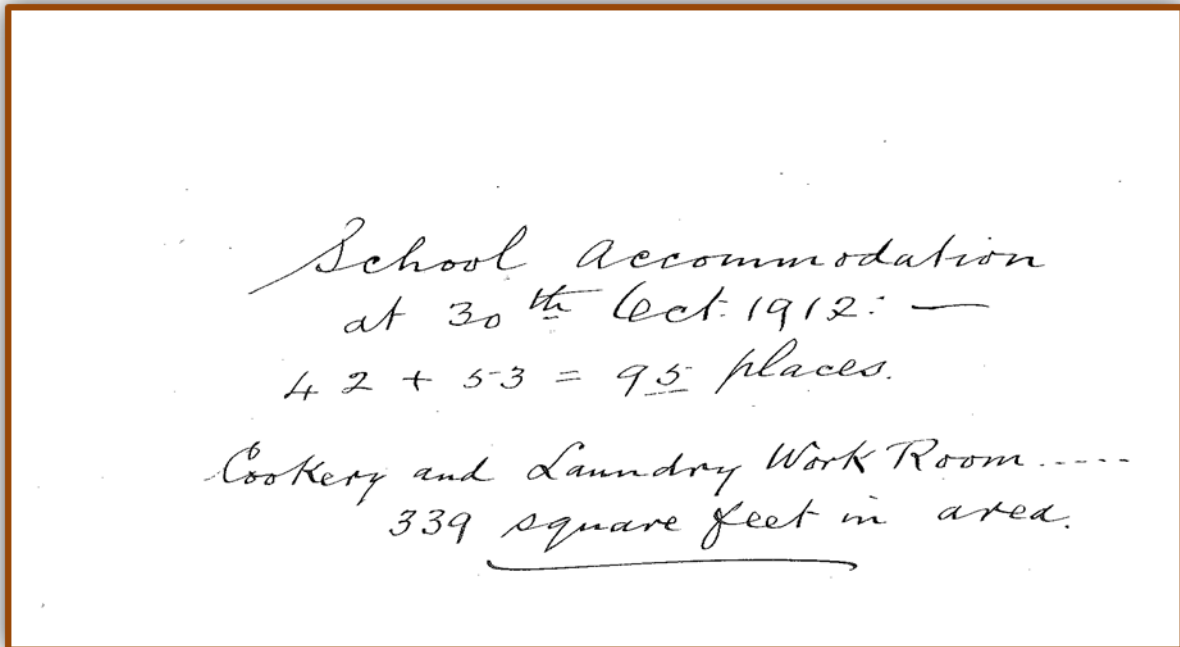 School Accommodation
at 30th Oct. 1912: —
42 + 53 = 95 places.
Cookery and Laundry Work Room.....
339 square feet in area.